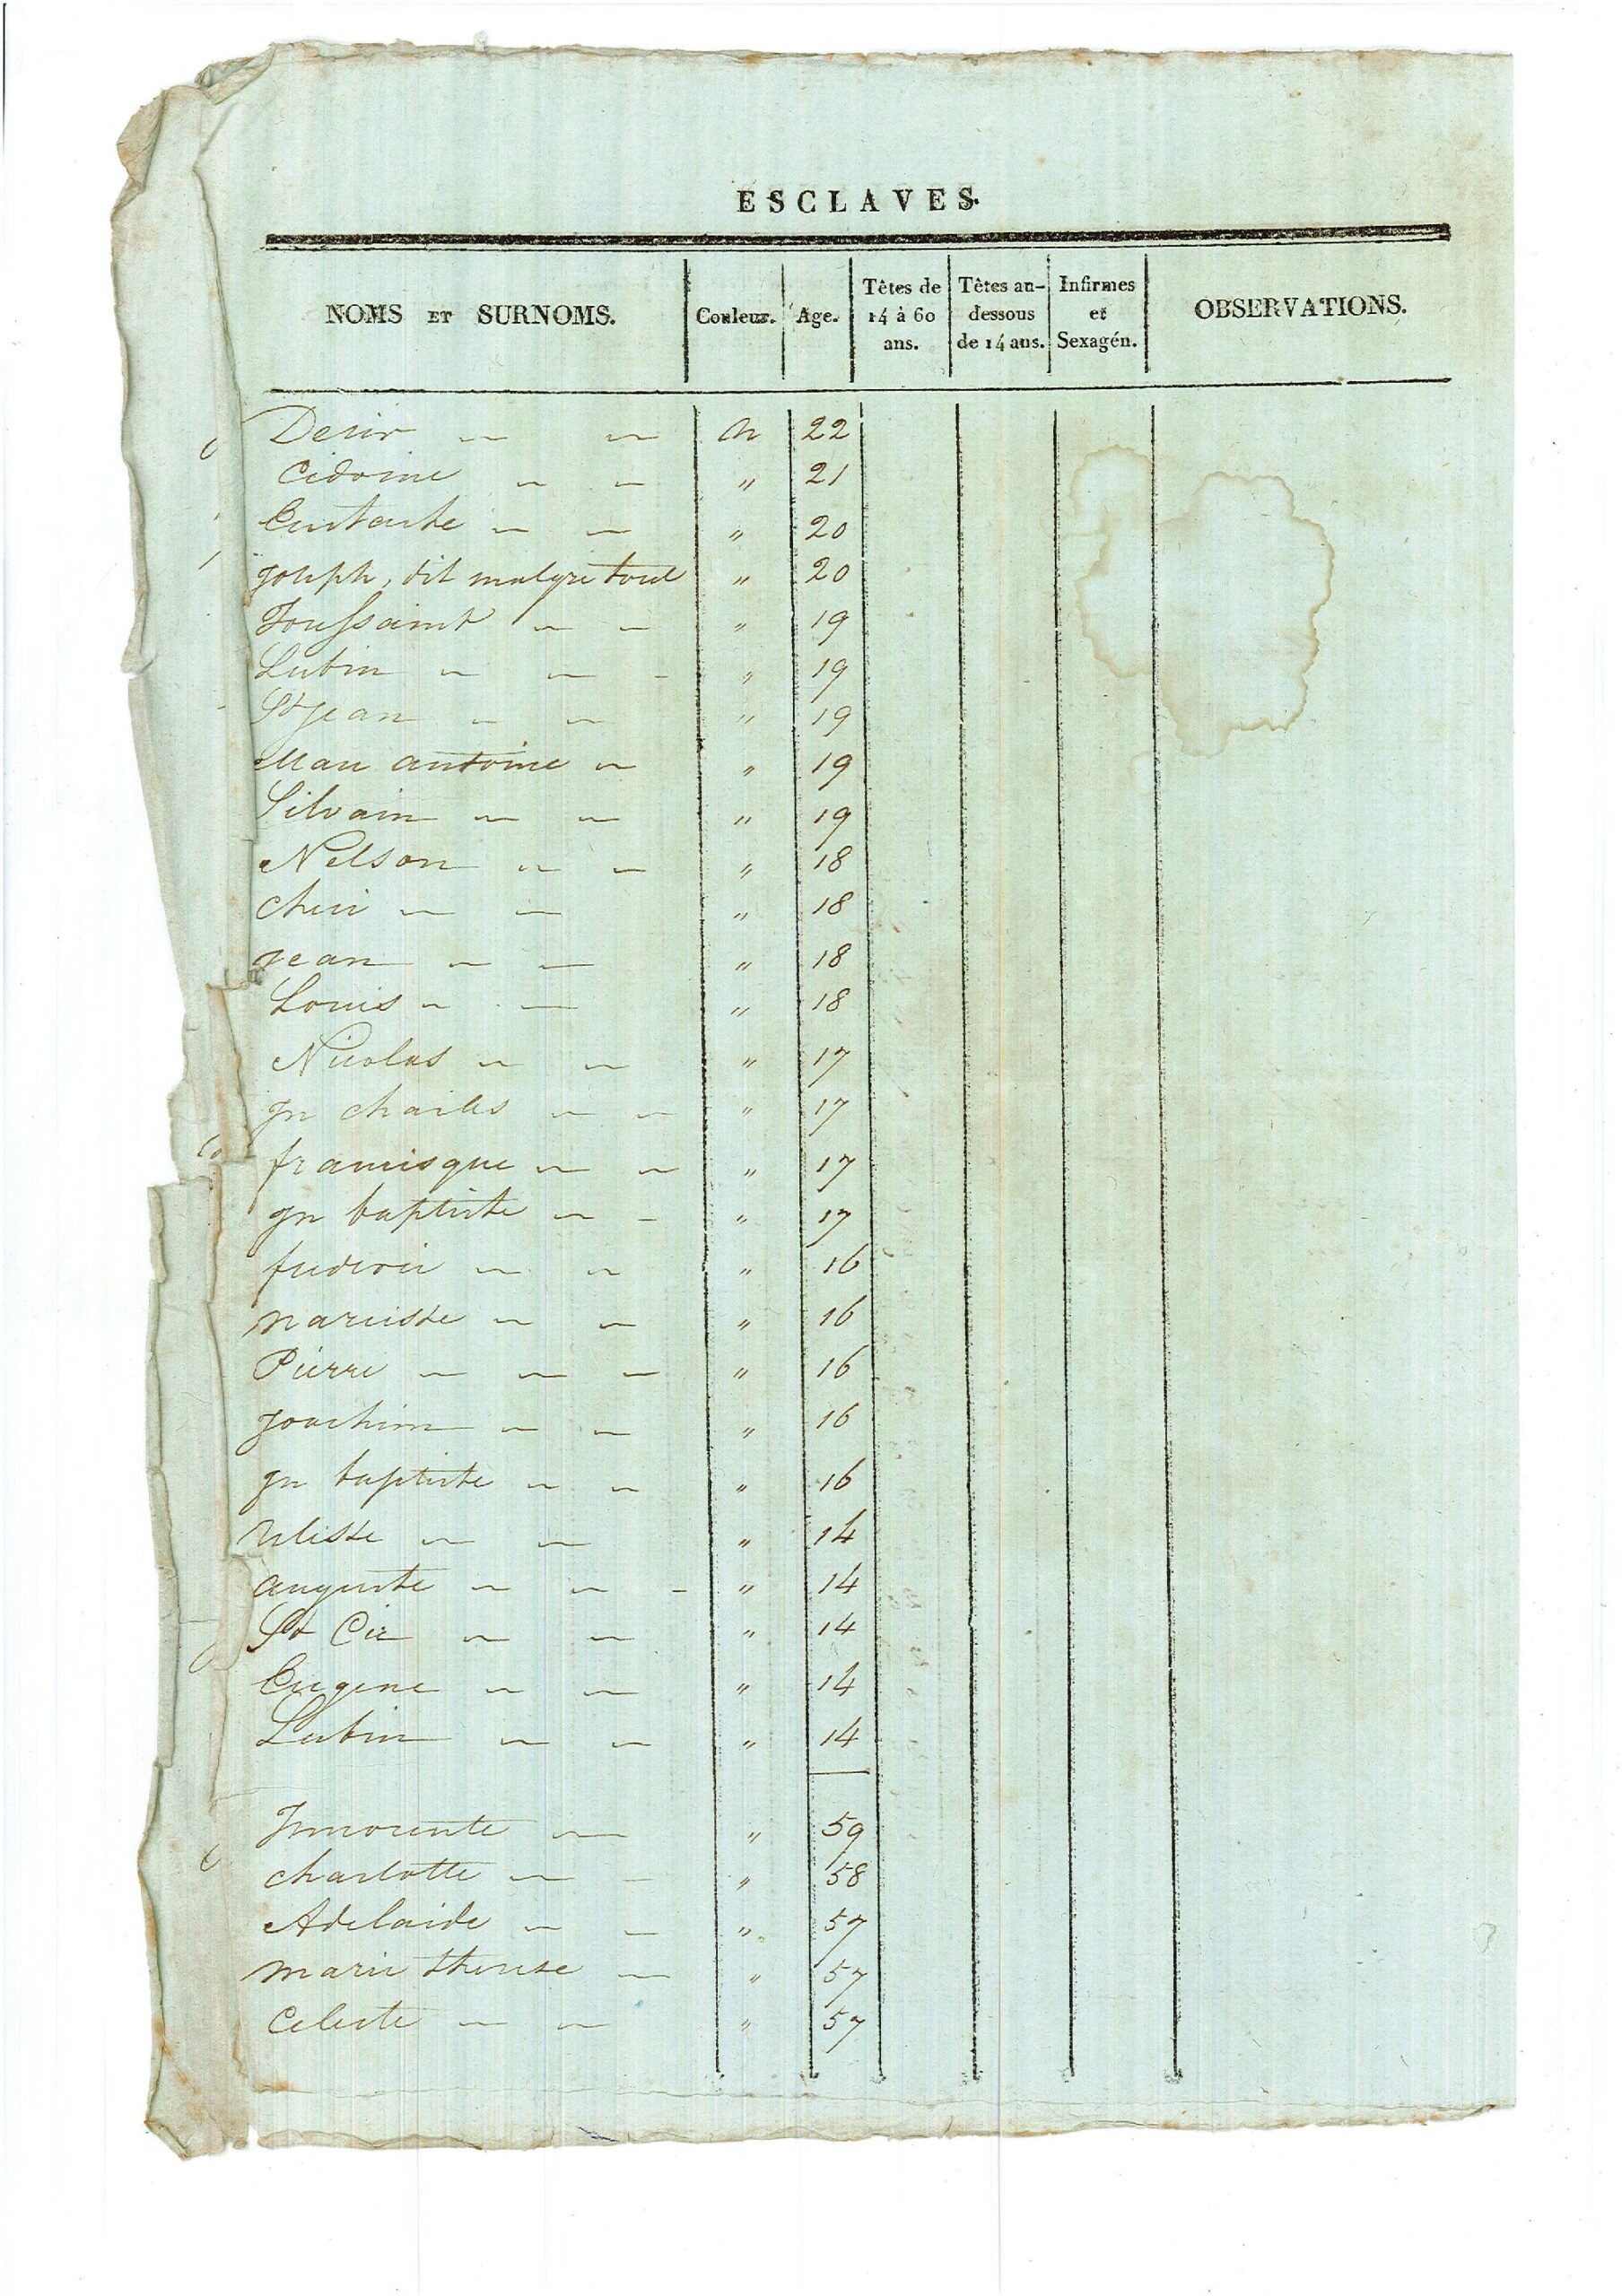 ESCLAVES.
NOMS ET SURNOMS. Couleur. Age. Têtes de 14 à 60 ans. Têtes au-dessous de 14 ans. Infirmes et Sexagén. OBSERVATIONS.
Desir n 22
Cidoine " 21
Eustache " 20
joseph, dit malgré tout " 20
Toussaint " 19
Lubin " 19
St jean " 19
Marc antoine " 19
Silvain " 19
Nelson " 18
cheri " 18
jean " 18
Louis " 18
Nicolas " 17
jn charles " 17
francisque " 17
jn baptiste " 17
frederic " 16
narcisse " 16
Pierre " 16
joachim " 16
jn baptiste " 16
ulisse " 14
auguste " 14
St Cir " 14
Eugene " 14
Lubin " 14
Innocente " 59
charlotte " 58
Adelaide " 57
marie therese " 57
Celeste " 57